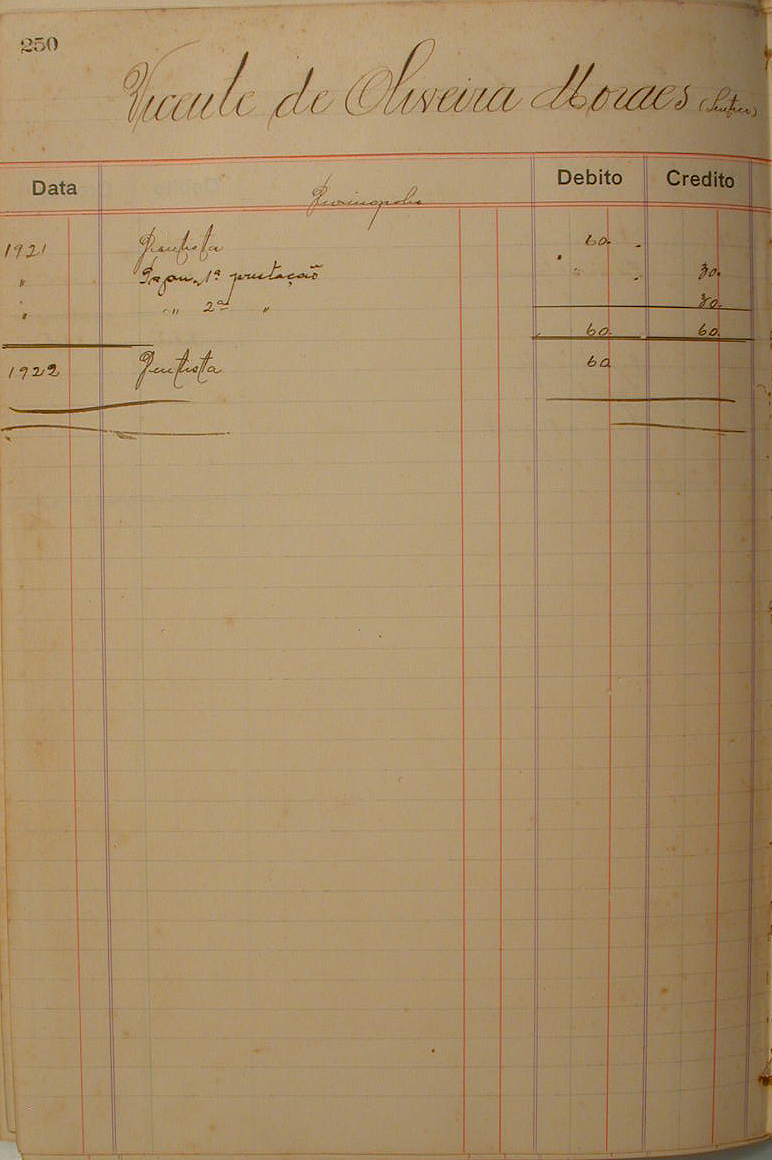 250
Vicente de Oliveira Moraes
Data Debito Credito
1921 Dentista 60.
" Pagou 1ª prestação 30.
" " 2ª " 30.
60. 60.
1922 Dentista 60